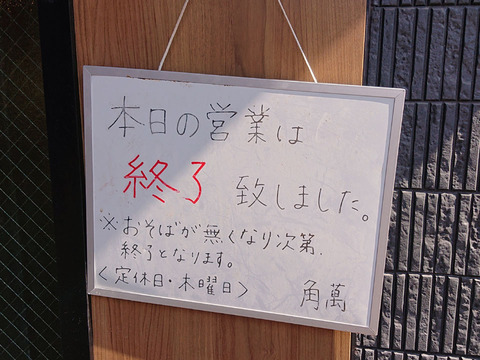 本日の営業は
終了 致しました。
※おそばが無くなり次第、
終了となります。
<定休日・木曜日> 角萬